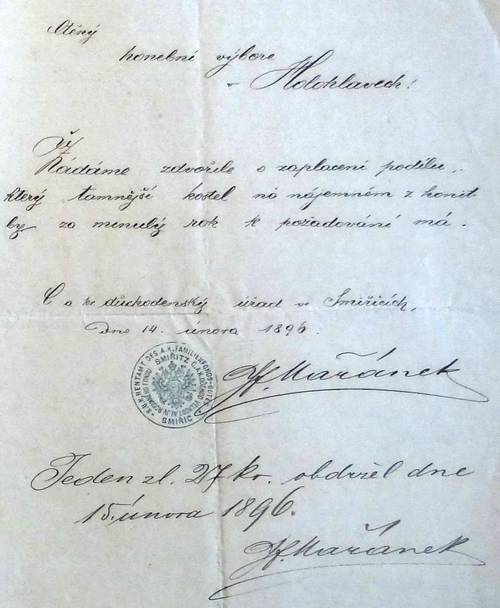 Ctěný
honební výbore
v Holohlavech!
Žádáme zdvořile o zaplacení podílu,
který tamnější kostel na nájemném z honit
by za minulý rok k požadování má.
C a k. důchodenský úřad ve Smiřicích,
Dne 14. února 1896.
K.U.K. RENTAMT DES A.K. FAMILIENFONDS-GUTES
SMIŘITZ
SMIŘIC
Jf. Mařánek
Jeden zl. 27 kr. obdržel dne
15. února 1896.
Jf. Mařánek